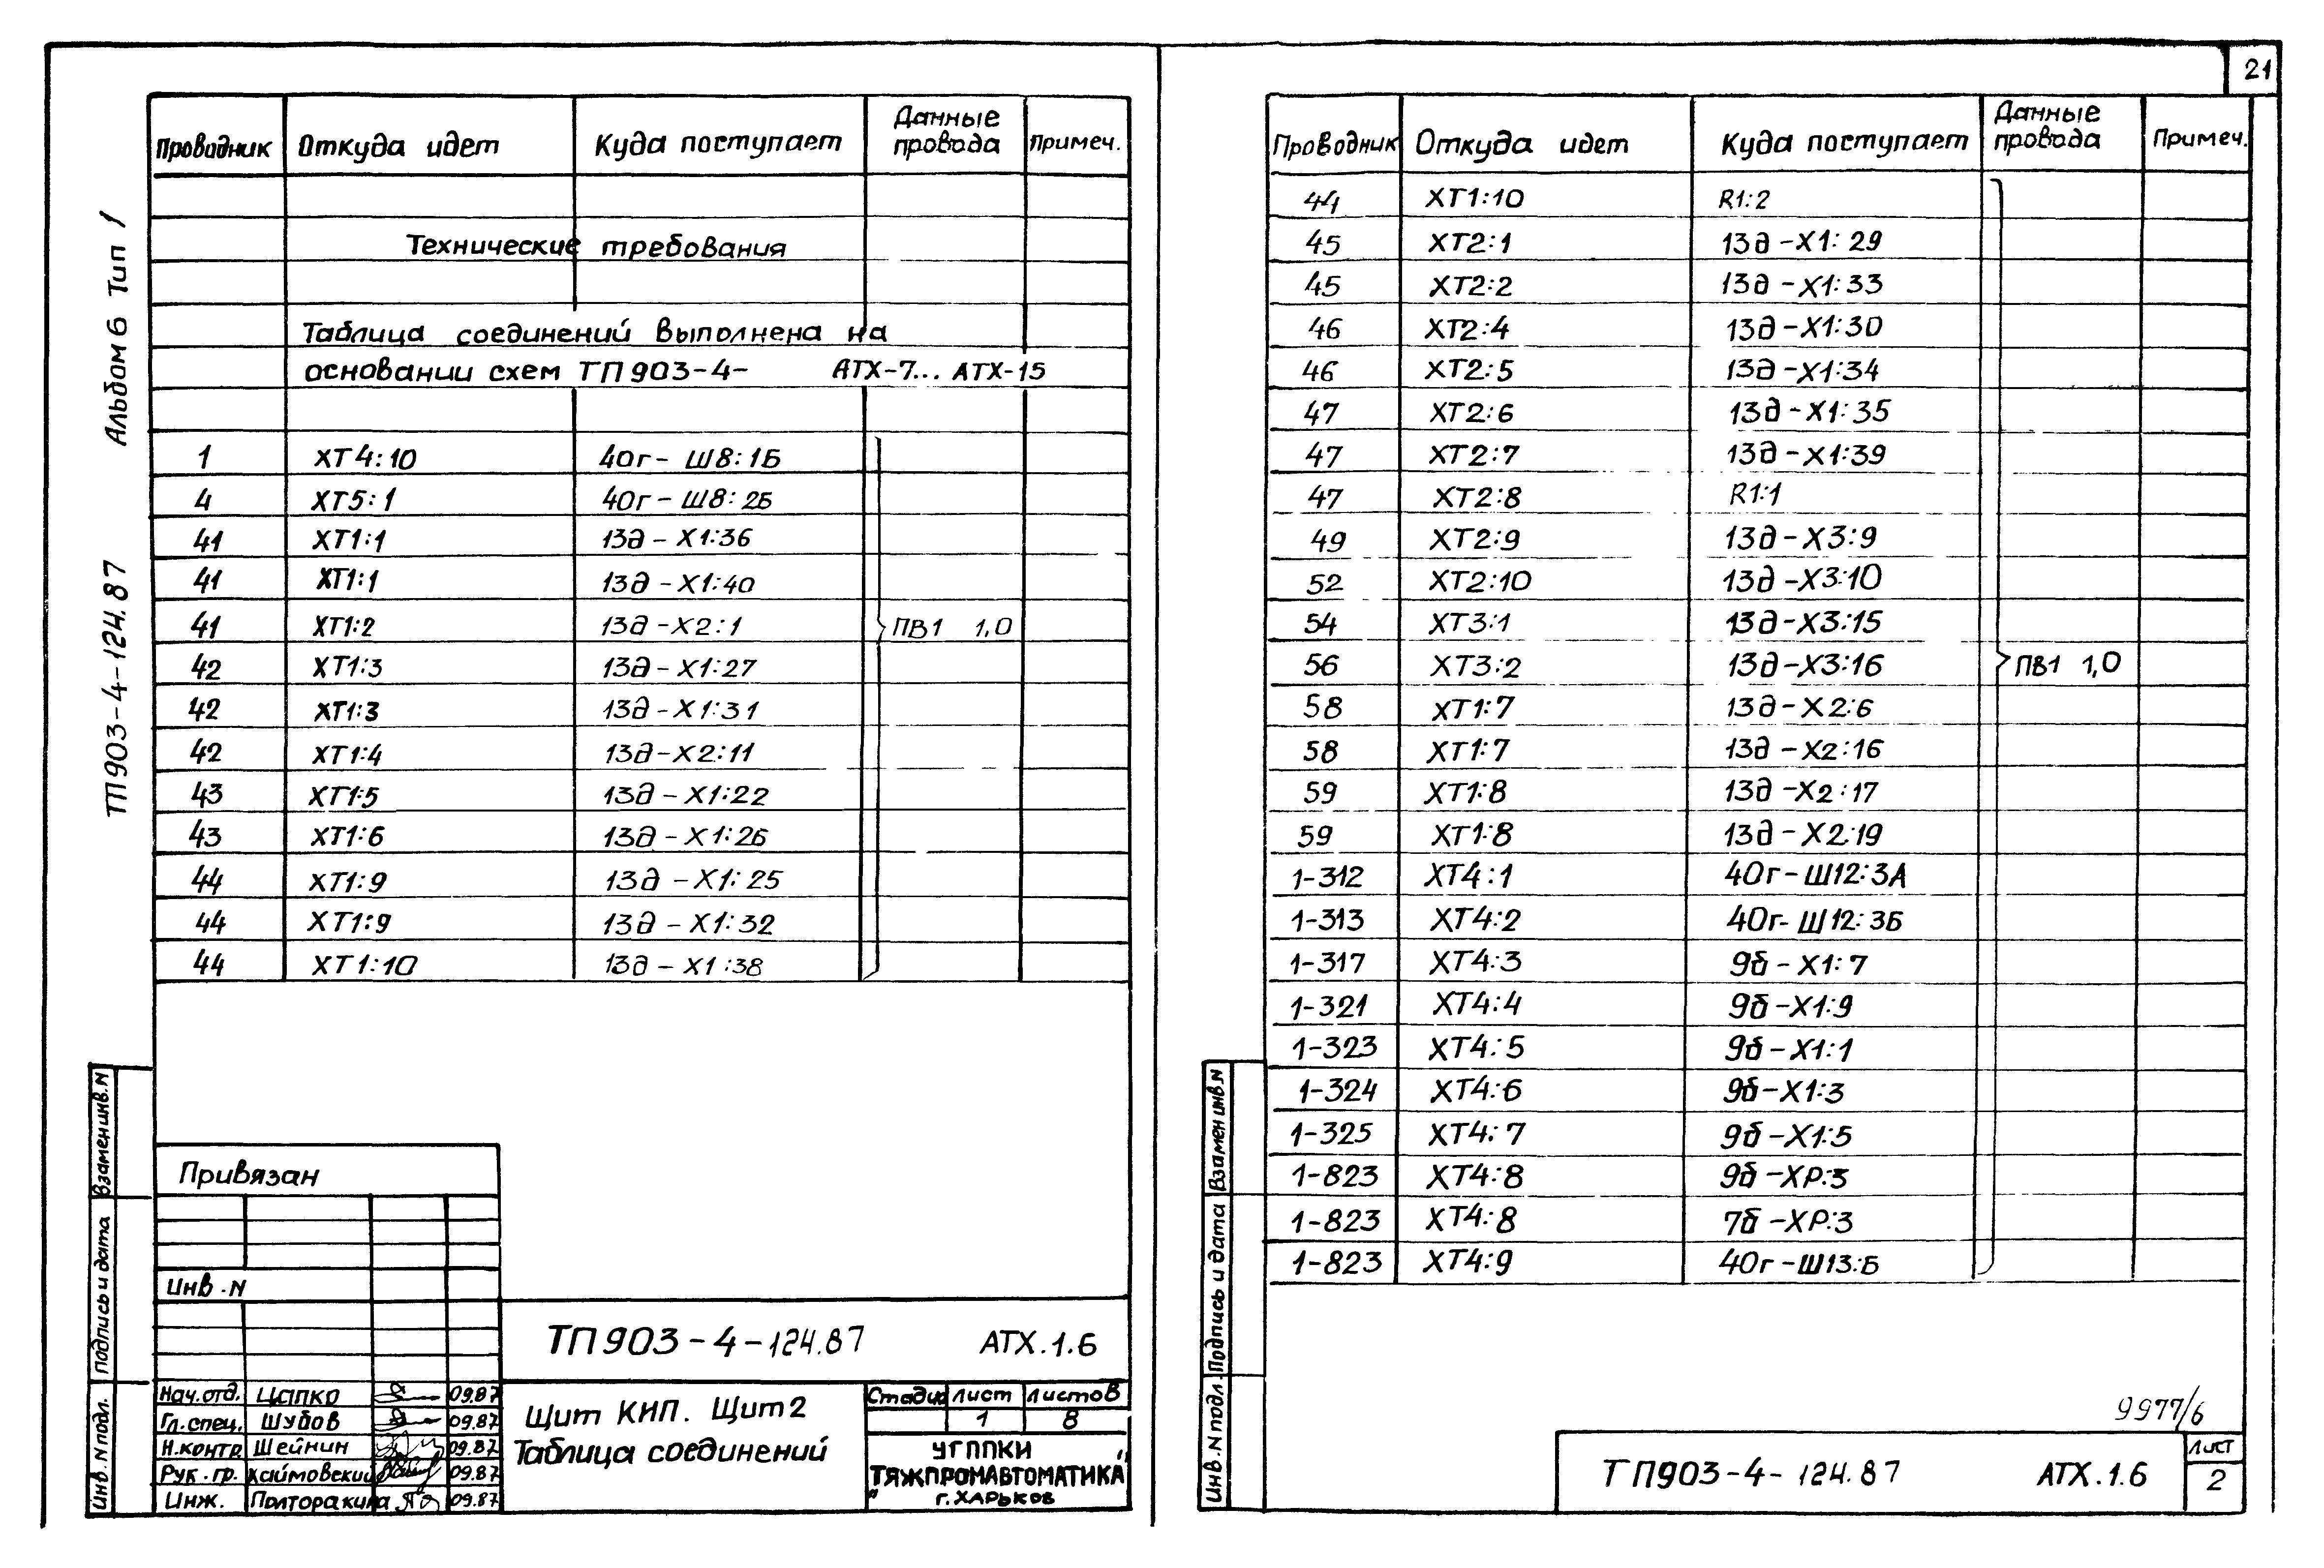 21
Альбом 6 Тип 1
ТП903-4-124.87
Проводник Откуда идет Куда поступает Данные провода Примеч.
Технические требования
Таблица соединений выполнена на
основании схем ТП903-4- АТХ-7... АТХ-15
1 ХТ4:10 40г-Ш8:1Б
4 ХТ5:1 40г-Ш8:2Б
41 ХТ1:1 13д-Х1:36
41 ХТ1:1 13д-Х1:40
41 ХТ1:2 13д-Х2:1 ПВ1 1,0
42 ХТ1:3 13д-Х1:27
42 ХТ1:3 13д-Х1:31
42 ХТ1:4 13д-Х2:11
43 ХТ1:5 13д-Х1:22
43 ХТ1:6 13д-Х1:26
44 ХТ1:9 13д-Х1:25
44 ХТ1:9 13д-Х1:32
44 ХТ1:10 13д-Х1:38
Привязан
Инв.N
ТП903-4-124.87 АТХ.1.6
Нач.отд. Цапко 09.87
Гл.спец. Шубов 09.87
Н.контр Шейнин 09.87
Рук.гр. Хаймовский 09.87
Инж. Полторакина 09.87
Щит КИП. Щит 2
Таблица соединений
Стадия Лист Листов
1 8
УГППКИ
"ТЯЖПРОМАВТОМАТИКА"
г.ХАРЬКОВ
Взамен инв.N
Подпись и дата
Инв.N подл.
Проводник Откуда идет Куда поступает Данные провода Примеч.
44 ХТ1:10 R1:2
45 ХТ2:1 13д-Х1:29
45 ХТ2:2 13д-Х1:33
46 ХТ2:4 13д-Х1:30
46 ХТ2:5 13д-Х1:34
47 ХТ2:6 13д-Х1:35
47 ХТ2:7 13д-Х1:39
47 ХТ2:8 R1:1
49 ХТ2:9 13д-Х3:9
52 ХТ2:10 13д-Х3:10
54 ХТ3:1 13д-Х3:15
56 ХТ3:2 13д-Х3:16 ПВ1 1,0
58 ХТ1:7 13д-Х2:6
58 ХТ1:7 13д-Х2:16
59 ХТ1:8 13д-Х2:17
59 ХТ1:8 13д-Х2:19
1-312 ХТ4:1 40г-Ш12:3А
1-313 ХТ4:2 40г-Ш12:3Б
1-317 ХТ4:3 9б-Х1:7
1-321 ХТ4:4 9б-Х1:9
1-323 ХТ4:5 9б-Х1:1
1-324 ХТ4:6 9б-Х1:3
1-325 ХТ4:7 9б-Х1:5
1-823 ХТ4:8 9б-ХР:3
1-823 ХТ4:8 7б-ХР:3
1-823 ХТ4:9 40г-Ш13:Б
9977/6
ТП903-4-124.87 АТХ.1.6
Лист
2
Взамен инв.N
Подпись и дата
Инв.N подл.